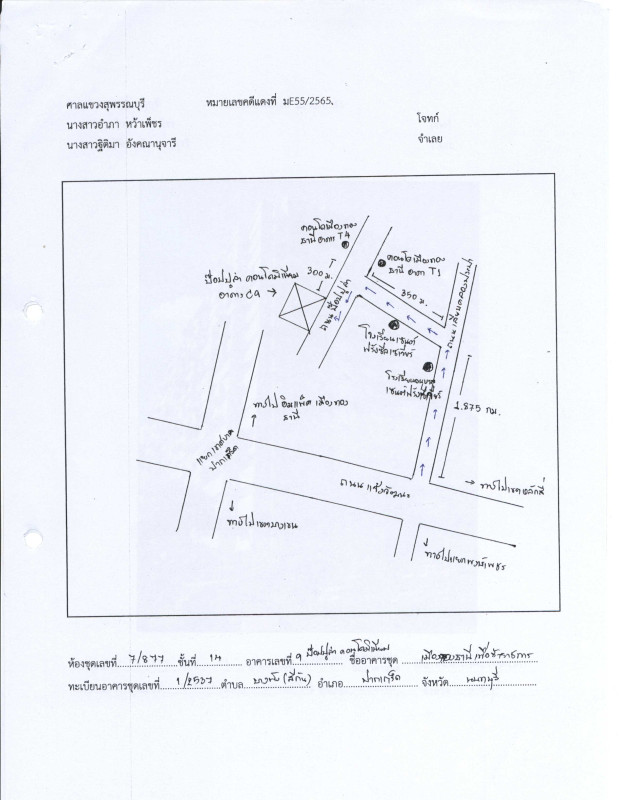 ศาลแขวงสุพรรณบุรี หมายเลขคดีแดงที่ มE55/2565
นางสาวอำภา หว้าเพ็ชร โจทก์
นางสาวฐิติมา อังคณานุจารี จำเลย
คอนโดเมืองทอง
ธานี อาคาร T4
คอนโดเมืองทอง
ธานี อาคาร T1
ป๊อปปูล่า คอนโดมิเนียม
อาคาร C9 →
300 ม.
350 ม.
ถนน ป๊อปปูล่า
ถนนเลียบคลองประปา
โรงเรียนเซนต์
ฟรังซีสเซเวียร์
โรงเรียนอนุบาล
เซนต์ฟรังซีสเซเวียร์
1.875 กม.
ทางไป อิมแพ็ค เมืองทอง
ธานี
แยก
ปากเกร็ด
ถนน แจ้งวัฒนะ
→ ทางไปเขตหลักสี่
ทางไป
ทางไปแยกพงษ์เพชร
ห้องชุดเลขที่ 7/877 ชั้นที่ 14 อาคารเลขที่ 9 ป๊อปปูล่า คอนโดมิเนียม ชื่ออาคารชุด เมืองทองธานี
ทะเบียนอาคารชุดเลขที่ 1/2537 ตำบล บางพูด (สีกัน) อำเภอ ปากเกร็ด จังหวัด นนทบุรี